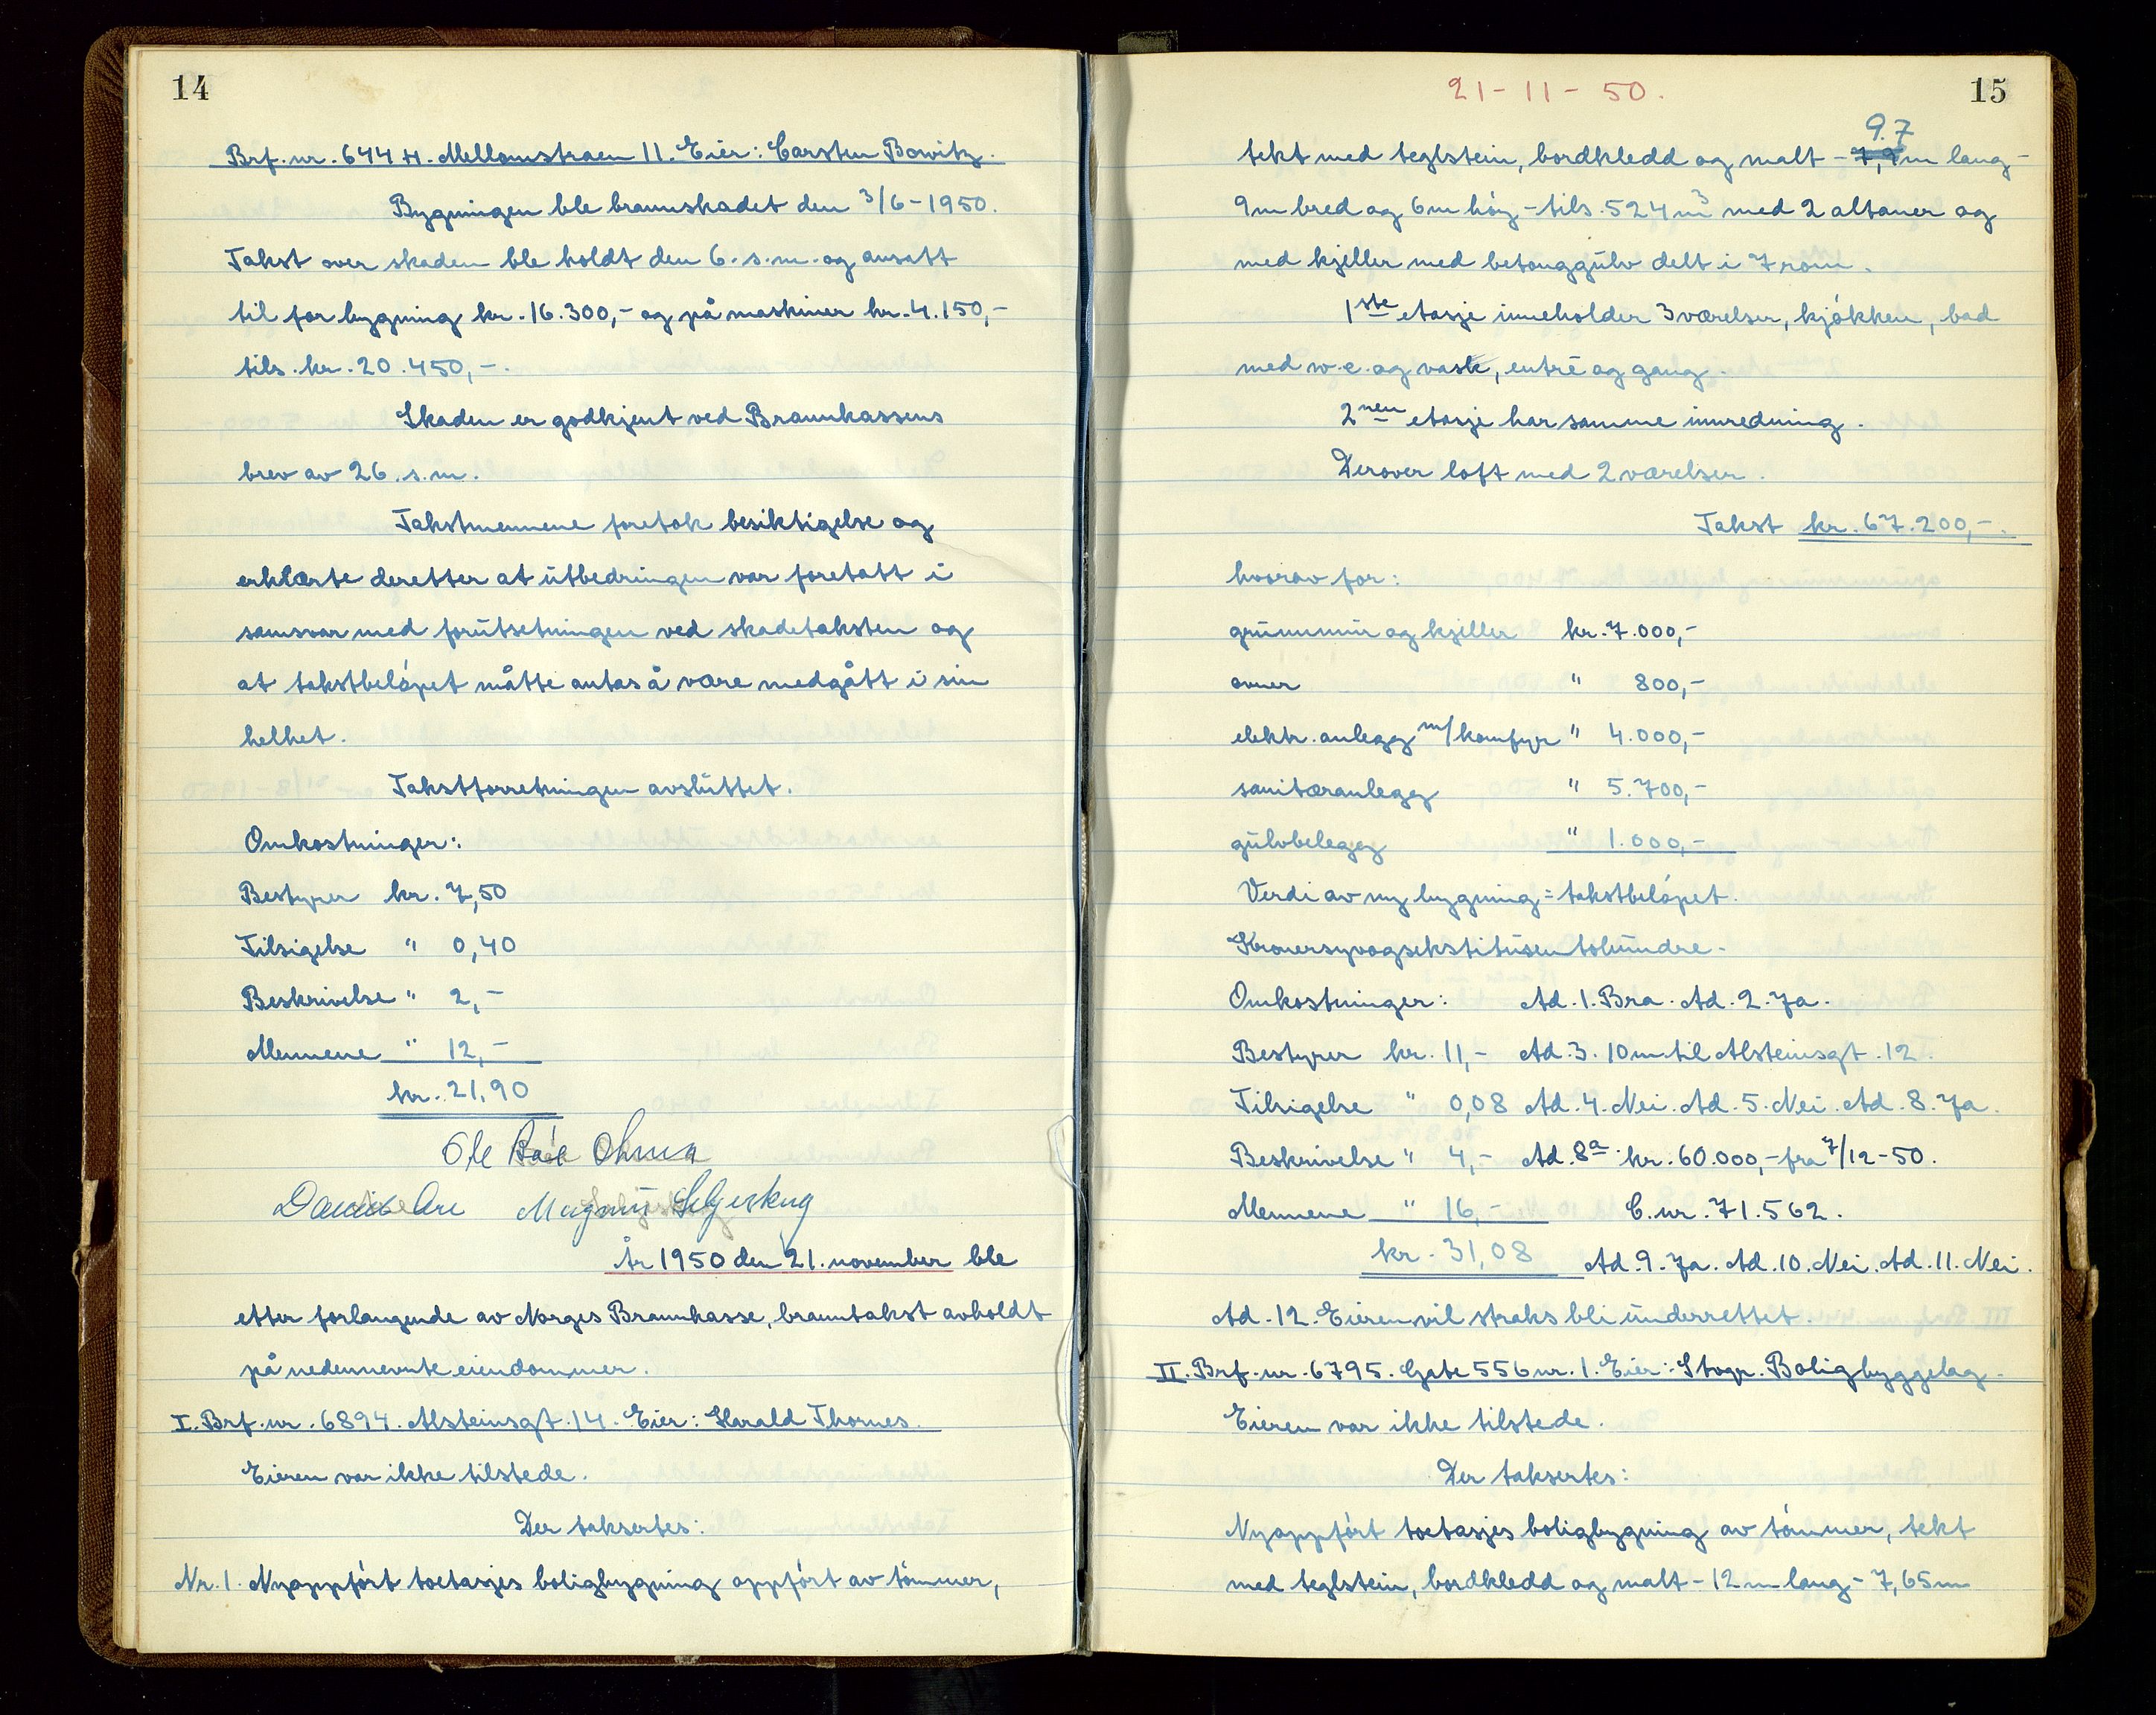 14
Brf. nr. 644 H. Mellomstraen 11. Eier: Carsten Bowitz.
Bygningen ble brannskadet den 3/6-1950.
Takst over skaden ble holdt den 6. s.m. og ansatt
til for bygning kr. 16.300,- og på maskiner kr. 4.150,-
tils. kr. 20.450,-.
Skaden er godkjent ved Brannkassens
brev av 26. s.m.
Takstmennene foretok besiktigelse og
erklærte deretter at utbedringen var foretatt i
samsvar med forutsetningen ved skadetaksten og
at takstbeløpet måtte antas å være medgått i sin
helhet.
Takstforretningen avsluttet.
Omkostninger:
Bestyrer kr. 7,50
Tilsigelse " 0,40
Beskrivelse " 2,-
Mennene " 12,-
kr. 21,90
Ole
Magnus
År 1950 den 21. november ble
etter forlangende av Norges Brannkasse, branntakst avholdt
på nedennevnte eiendommer.
I. Brf. nr. 6894. Alsteinsgt. 14. Eier: Harald Thornes.
Eieren var ikke tilstede.
Der taksertes:
Nr. 1. Nyoppført toetasjes boligbygning oppført av tömmer,
21-11-50.
15
9.7
tekt med teglstein, bordkledd og malt - 7,9 m lang -
9m bred og 6m høy - tils. 524 m3 med 2 altaner og
med kjeller med betonggulv delt i 7 rom.
1ste etasje inneholder 3 værelser, kjøkken, bad
med w.c. og vask, entré og gang.
2nen etasje har samme innredning.
Derover loft med 2 værelser.
Takst kr. 67.200,-.
hvorav for:
grunnmur og kjeller kr. 7.000,-
ovner " 800,-
elektr. anlegg m/komfyr " 4.000,-
sanitæranlegg " 5.700,-
gulvbelegg " 1.000,-
Verdi av ny bygning = takstbeløpet.
Kronersyvogsekstitusentohundre-
Omkostninger: Ad. 1. Bra. Ad. 2. Ja.
Bestyrer kr. 11,- Ad. 3. 10m til Alsteinsgt. 12.
Tilsigelse " 0,08 Ad. 4. Nei. Ad. 5. Nei. Ad. 8. Ja.
Beskrivelse " 4,- Ad. 8a. kr. 60.000,- fra 7/12-50.
Mennene " 16,- C. nr. 71.562.
kr. 31,08 Ad. 9. Ja. Ad. 10. Nei. Ad. 11. Nei.
Ad. 12. Eieren vil straks bli underrettet.
II. Brf. nr. 6795. Gate 556 nr. 1. Eier: Stvgr. Boligbyggelag.
Eieren var ikke tilstede.
Der taksertes:
Nyoppført toetasjes boligbygning av tömmer, tekt
med teglstein, bordkledd og malt - 12 m lang - 7,65m